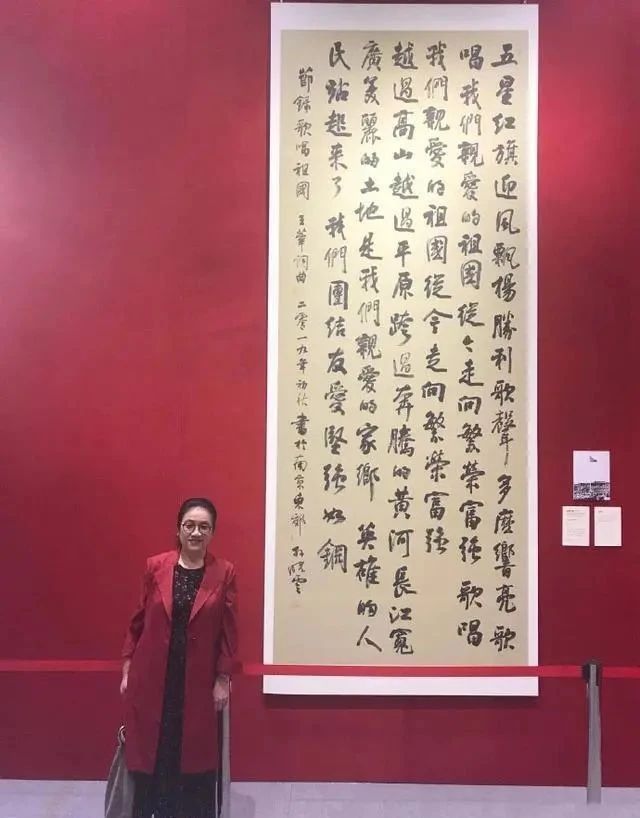 五星紅旗迎風飄揚勝利歌聲多麼響亮歌
唱我們親愛的祖國從今走向繁榮富强歌唱
我們親愛的祖國從今走向繁榮富强
越過高山越過平原跨過奔騰的黄河長江寬
廣美麗的土地是我們親愛的家鄉 英雄的人
民站起來了 我們團結友愛堅强如鋼
節錄歌唱祖國 王莘詞曲 二零一九年初秋 書於南京東郊 孫曉雲